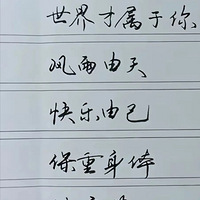 世界才属于你
风雨由天
快乐由己
保重身体